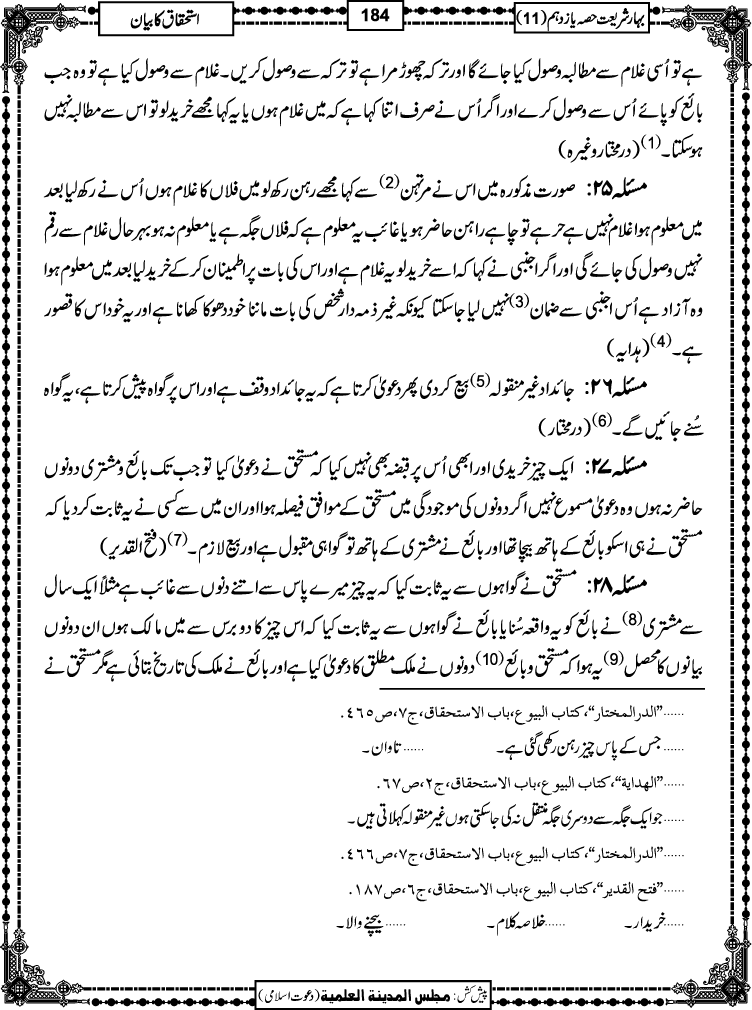 بہار شریعت حصہ یاز دہم (11)
184
استحقاق کا بیان
ہے تو اُسی غلام سے مطالبہ وصول کیا جائے گا اور ترکہ چھوڑ مرا ہے تو ترکہ سے وصول کریں۔ غلام سے وصول کیا ہے تو وہ جب
بائع کو پائے اُس سے وصول کرے اور اگر اُس نے صرف اتنا کہا ہے کہ میں غلام ہوں یا یہ کہا مجھے خرید لو تو اس سے مطالبہ نہیں
ہوسکتا۔(1) (درمختار وغیرہ)
مسئلہ ۲۵: صورت مذکورہ میں اس نے مرتہن(2) سے کہا مجھے رہن رکھ لو میں فلاں کا غلام ہوں اُس نے رکھ لیا بعد
میں معلوم ہوا غلام نہیں ہے حر ہے تو چاہے راہن حاضر ہو یا غائب یہ معلوم ہے کہ فلاں جگہ ہے یا معلوم نہ ہو بہرحال غلام سے رقم
نہیں وصول کی جائے گی اور اگر اجنبی نے کہا کہ اسے خرید لو یہ غلام ہے اور اس کی بات پر اطمینان کرکے خرید لیا بعد میں معلوم ہوا
وہ آزاد ہے اُس اجنبی سے ضمان(3) نہیں لیا جاسکتا کیونکہ غیر ذمہ دار شخص کی بات ماننا خود دھوکا کھانا ہے اور یہ خود اس کا قصور
ہے۔(4) (ہدایہ)
مسئلہ ۲۶: جائداد غیر منقولہ(5) بیع کردی پھر دعویٰ کرتا ہے کہ یہ جائداد وقف ہے اور اس پر گواہ پیش کرتا ہے، یہ گواہ
سُنے جائیں گے۔(6) (درمختار)
مسئلہ ۲۷: ایک چیز خریدی اور ابھی اُس پر قبضہ بھی نہیں کیا کہ مستحق نے دعویٰ کیا تو جب تک بائع و مشتری دونوں
حاضر نہ ہوں وہ دعویٰ مسموع نہیں اگر دونوں کی موجودگی میں مستحق کے موافق فیصلہ ہوا اور ان میں سے کسی نے یہ ثابت کردیا کہ
مستحق نے ہی اسکو بائع کے ہاتھ بیچا تھا اور بائع نے مشتری کے ہاتھ تو گواہی مقبول ہے اور بیع لازم۔(7) (فتح القدیر)
مسئلہ ۲۸: مستحق نے گواہوں سے یہ ثابت کیا کہ یہ چیز میرے پاس سے اتنے دنوں سے غائب ہے مثلاً ایک سال
سے مشتری(8) نے بائع کو یہ واقعہ سُنایا بائع نے گواہوں سے یہ ثابت کیا کہ اس چیز کا دو برس سے میں مالک ہوں ان دونوں
بیانوں کا محصل(9) یہ ہوا کہ مستحق و بائع(10) دونوں نے ملک مطلق کا دعویٰ کیا ہے اور بائع نے ملک کی تاریخ بتائی ہے مگر مستحق نے
......"الدرالمختار"، کتاب البیوع، باب الاستحقاق، ج۷، ص٤٦٥.
......جس کے پاس چیز رہن رکھی گئی ہے۔ ......تاوان۔
......"الهداية"، کتاب البیوع، باب الاستحقاق، ج۲، ص٦۷.
......جو ایک جگہ سے دوسری جگہ منتقل نہ کی جاسکتی ہوں غیر منقولہ کہلاتی ہیں۔
......"الدرالمختار"، کتاب البیوع، باب الاستحقاق، ج۷، ص٤٦٦.
......"فتح القدير"، کتاب البیوع، باب الاستحقاق، ج٦، ص۱۸۷.
......خریدار۔ ......خلاصہ کلام۔ ......بیچنے والا۔
پیش کش: مجلس المدينة العلمية (دعوت اسلامی)